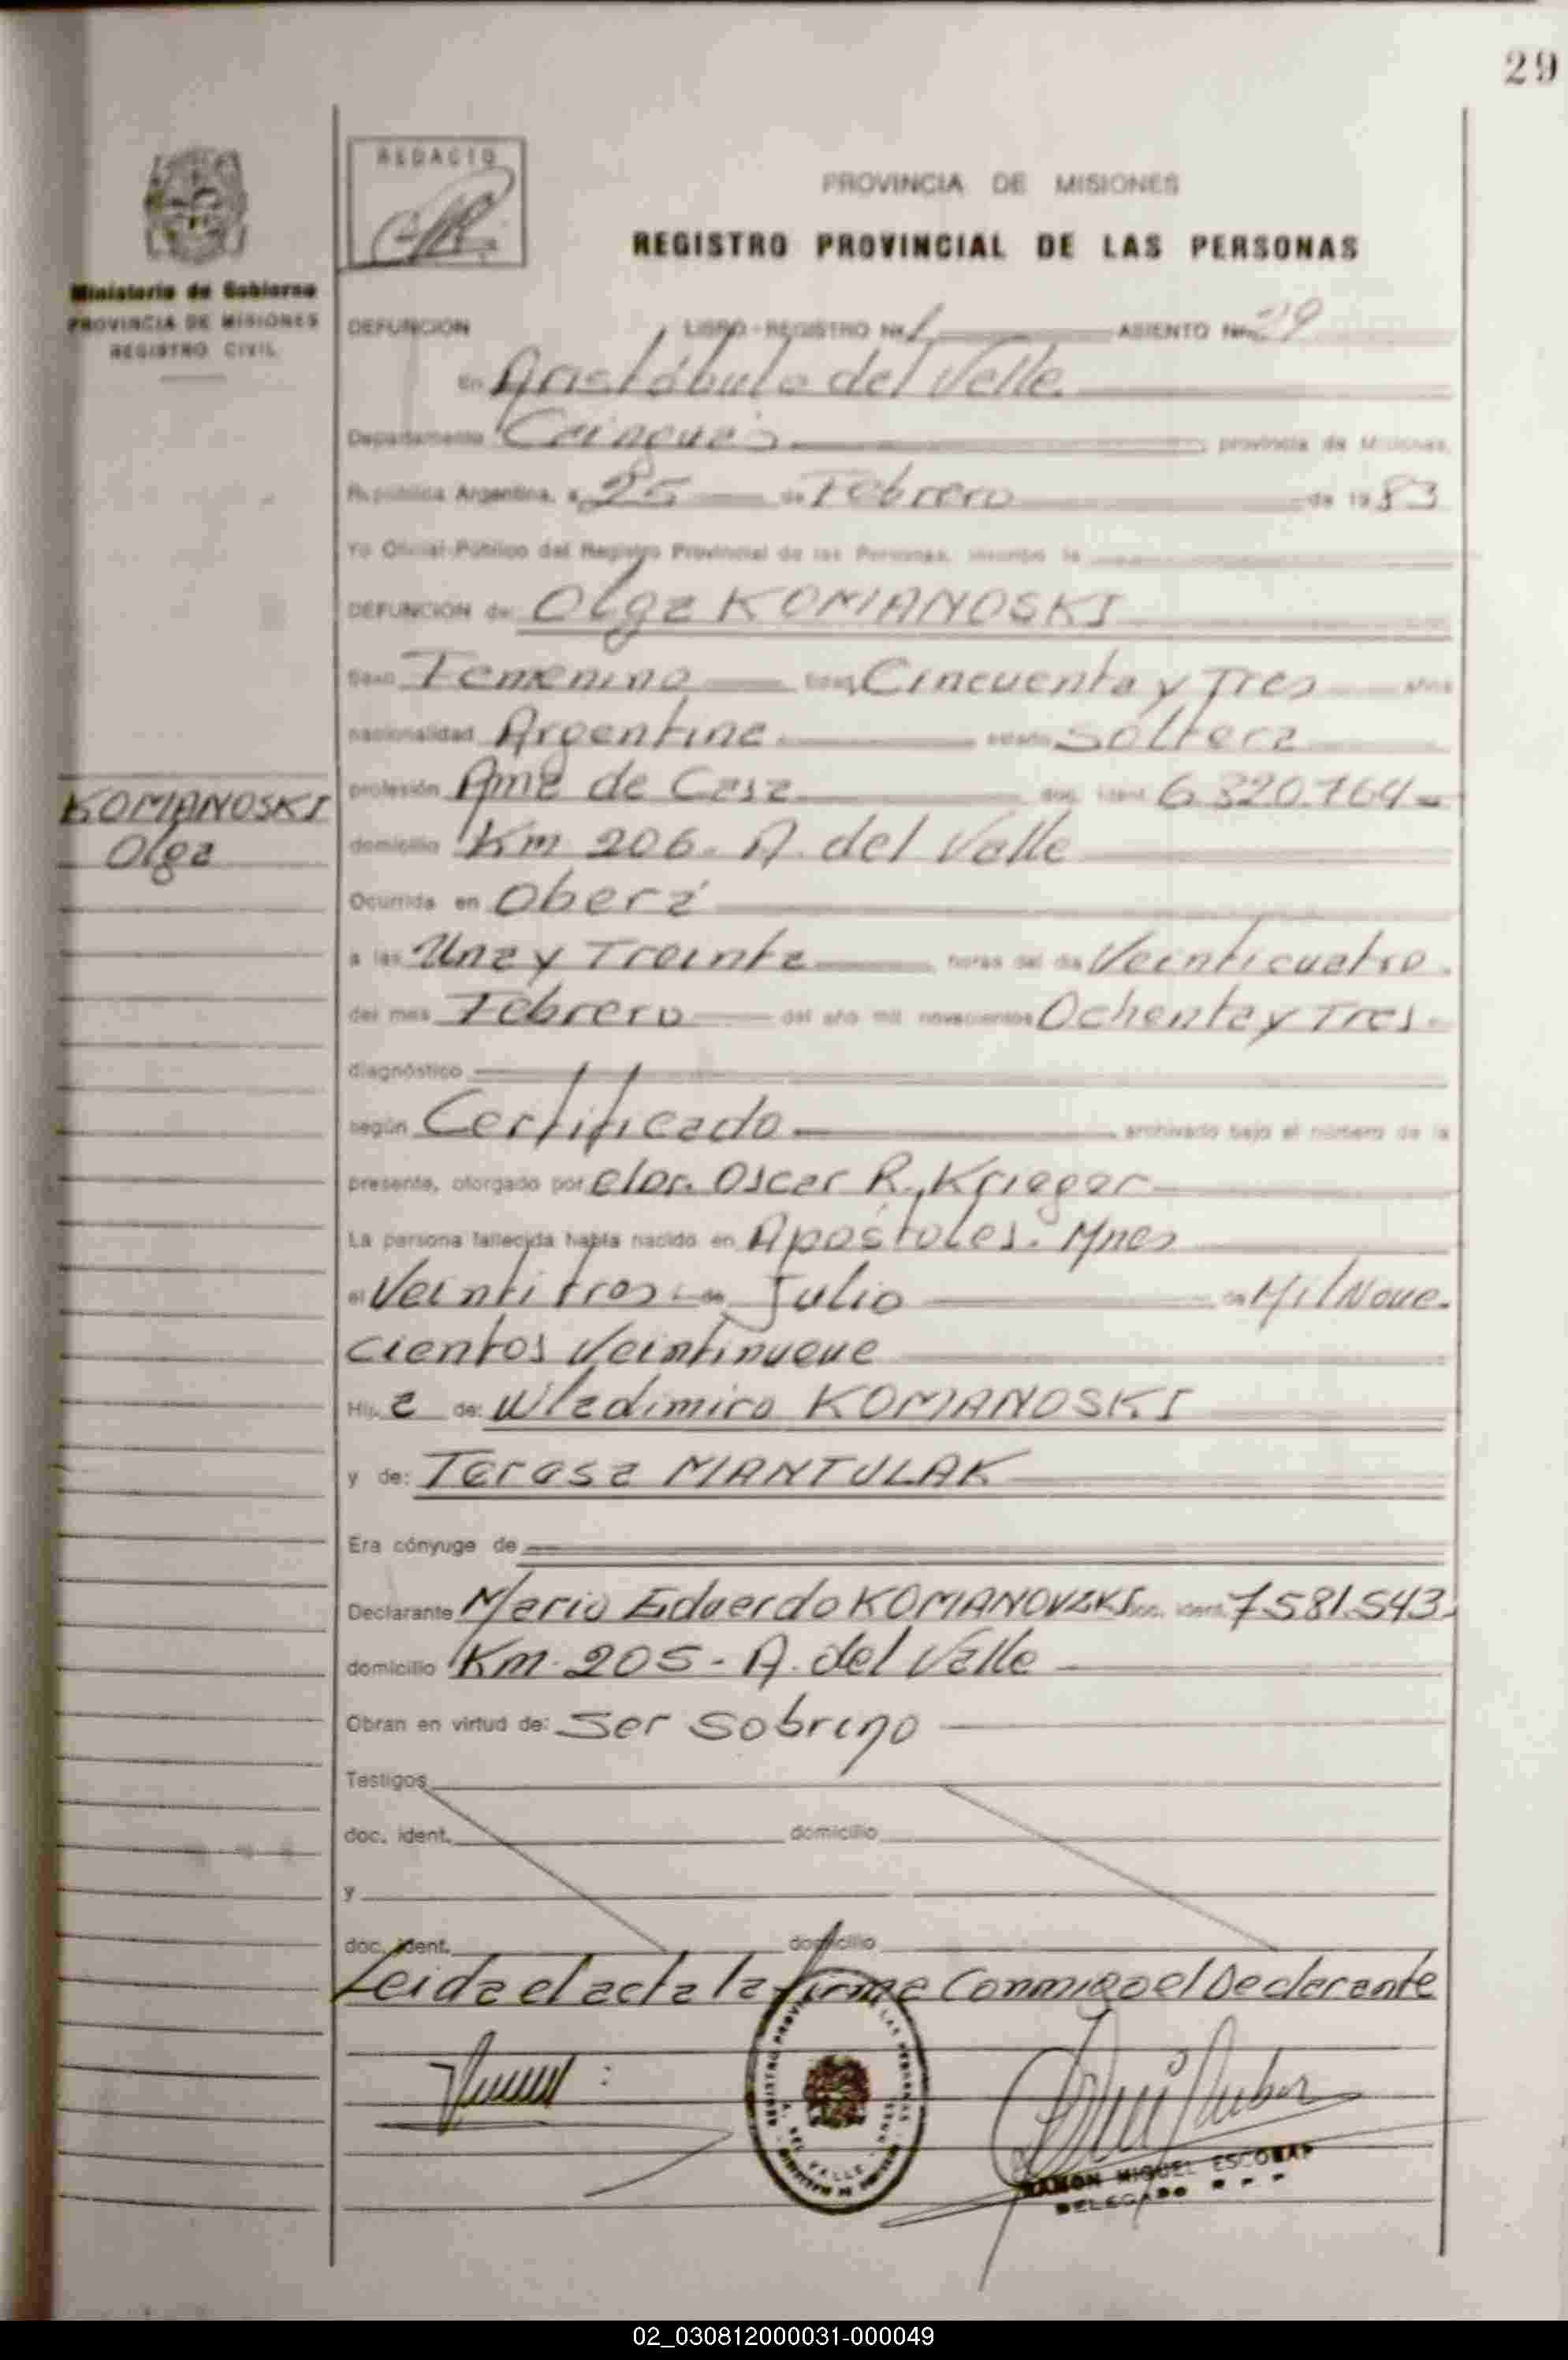 29
REDACTO
PROVINCIA DE MISIONES
REGISTRO PROVINCIAL DE LAS PERSONAS
Ministerio de Gobierno
PROVINCIA DE MISIONES
REGISTRO CIVIL
DEFUNCION LIBRO - REGISTRO Nº 1 ASIENTO Nº 29
En Aristóbulo del Valle
Departamento Cainguás provincia de Misiones,
República Argentina, a 25 de Febrero de 1983
Yo Oficial Público del Registro Provincial de las Personas, inscribo la
DEFUNCION de: Olga KOMANOSKI
Sexo Femenino Edad Cincuenta y Tres años
nacionalidad Argentina estado Soltera
profesión Ama de Casa doc. ident. 6.320.764
KOMANOSKI
Olga
domicilio Km 206. A. del Valle
Ocurrida en Oberá
a las Una y Treinta horas del día Veinticuatro.
del mes Febrero del año mil novecientos Ochenta y Tres.
diagnóstico
según Certificado archivado bajo el número de la
presente, otorgado por el Dr. Oscar R. Krieger
La persona fallecida había nacido en Apóstoles. Mnes
el Veintitres de Julio de Mil Nove-
cientos Veintinueve
Hij a de: Wladimiro KOMANOSKI
y de: Teresa MANTULAK
Era cónyuge de
Declarante Mario Eduardo KOMANOVZKI doc. ident. 7.581.543
domicilio Km. 205 - A. del Valle
Obran en virtud de: Ser Sobrino
Testigos
doc. ident. domicilio
y
doc. ident. domicilio
Leida el acta la firma Conmigo el Declarante
REGISTRO PROVINCIAL DE LAS PERSONAS
A. DEL VALLE
RAMON MIGUEL ESCOBAR
DELEGADO R P P
02_030812000031-000049